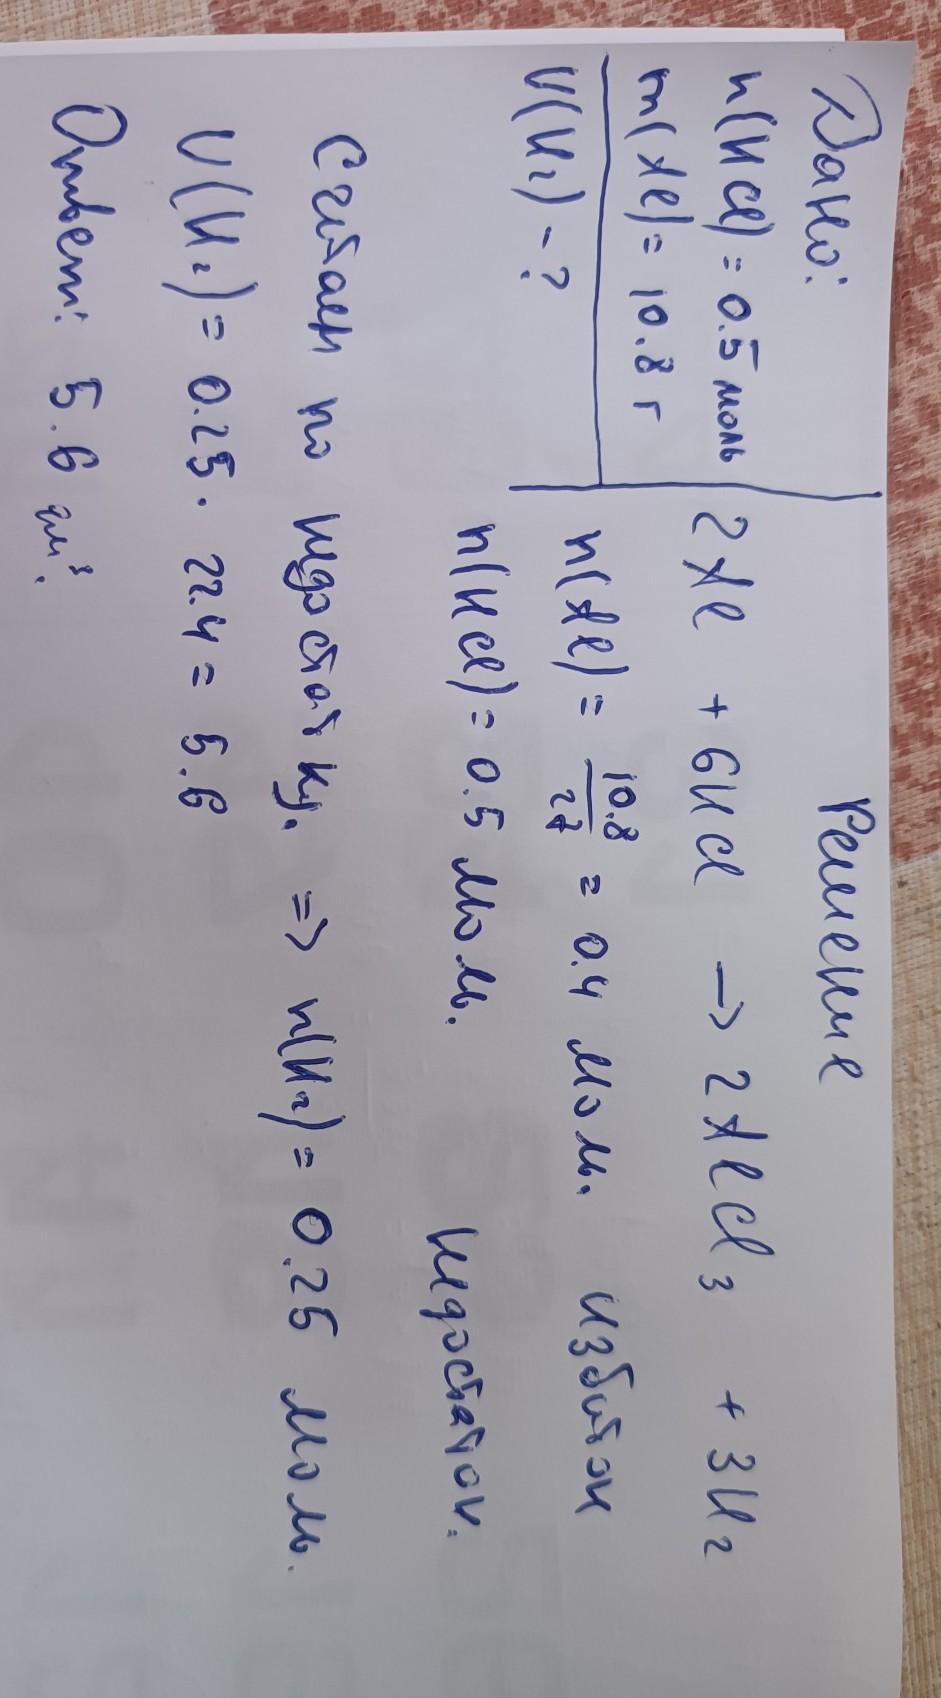 Дано:
n(HCl) = 0.5 моль
m(Al) = 10.8 г
V(H₂) - ?
Решение
2Al + 6HCl → 2AlCl₃ + 3H₂
n(Al) = 10.8/27 = 0.4 моль. избыток
n(HCl) = 0.5 моль. недостаток.
Считаем по недостатку. => n(H₂) = 0.25 моль.
V(H₂) = 0.25 · 22.4 = 5.6
Ответ: 5.6 дм³.